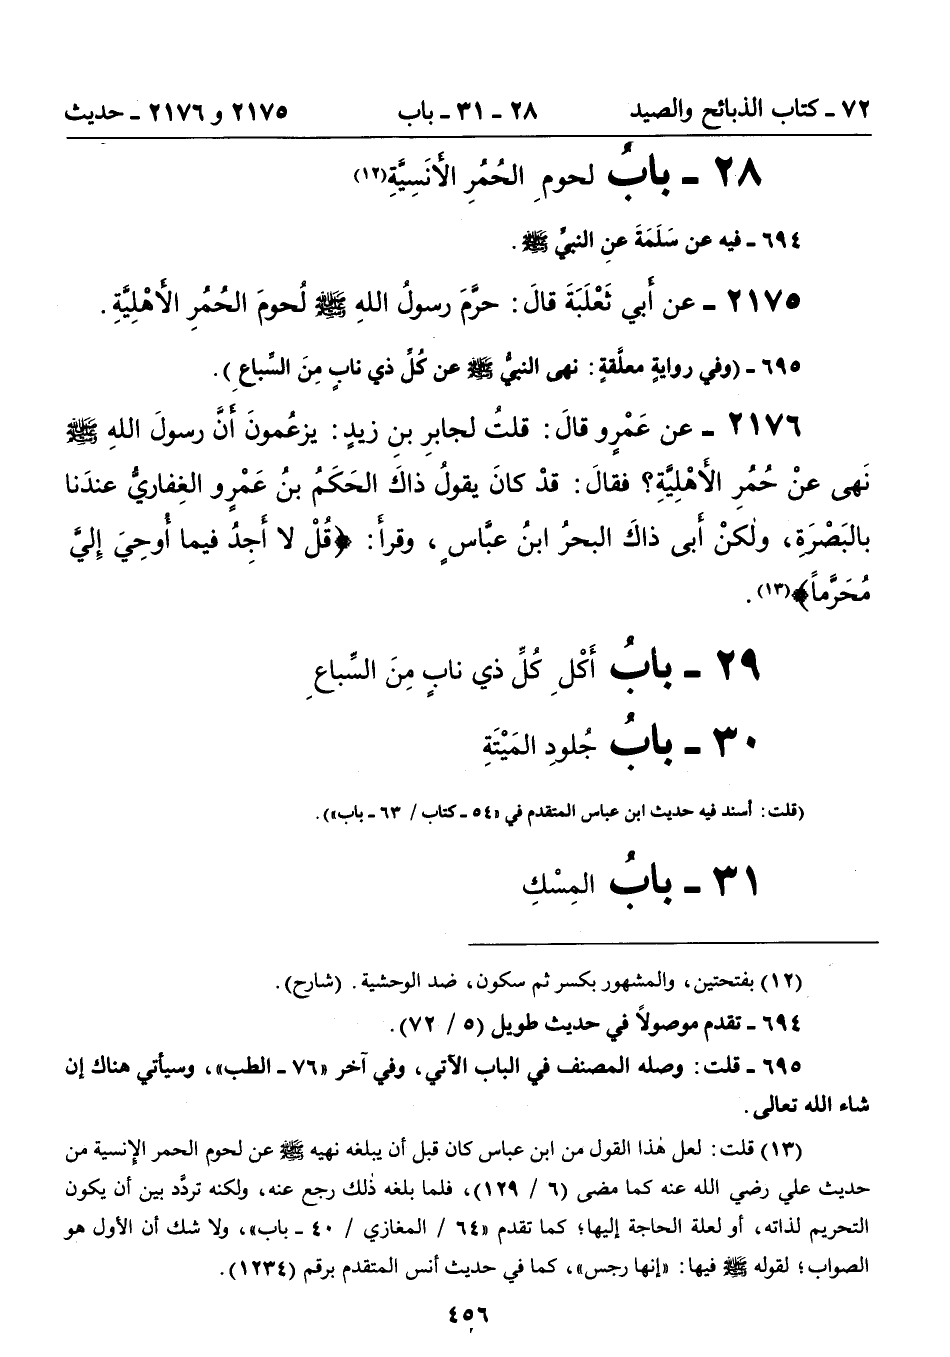 ٧٢ ـ كتاب الذبائح والصيد ٢٨ ـ ٣١ ـ باب ٢١٧٥ و ٢١٧٦ ـ حديث
٢٨ ـ بابُ لحومِ الحُمُرِ الأَنَسِيَّةِ(١٢)
٦٩٤ ـ فيه عن سَلَمَةَ عنِ النبيِّ ﷺ.
٢١٧٥ ـ عن أَبي ثَعْلَبَةَ قالَ: حرَّمَ رسولُ اللهِ ﷺ لُحومَ الحُمُرِ الأَهْلِيَّةِ.
٦٩٥ ـ (وفي روايةٍ معلَّقةٍ: نهى النبيُّ ﷺ عن كُلِّ ذي نابٍ مِنَ السِّباعِ).
٢١٧٦ ـ عن عَمْرٍو قالَ: قلتُ لجابرِ بنِ زيدٍ: يزعُمونَ أَنَّ رسولَ اللهِ ﷺ
نَهى عنْ حُمُرِ الأَهْلِيَّةِ؟ فقالَ: قدْ كانَ يقولُ ذاكَ الحَكَمُ بنُ عَمْرٍو الغِفاريُّ عندَنا
بالبَصْرَةِ، ولٰكنْ أَبى ذاكَ البحرُ ابنُ عبَّاسٍ، وقرأَ: ﴿قُلْ لا أَجِدُ فيما أُوحِيَ إِليَّ
مُحَرَّماً﴾(١٣).
٢٩ ـ بابُ أَكْلِ كُلِّ ذي نابٍ مِنَ السِّباعِ
٣٠ ـ بابُ جُلودِ المَيْتَةِ
(قلت: أسند فيه حديث ابن عباس المتقدم في «٥٤ ـ كتاب / ٦٣ ـ باب»).
٣١ ـ بابُ المِسْكِ
(١٢) بفتحتين، والمشهور بكسر ثم سكون، ضد الوحشية. (شارح).
٦٩٤ ـ تقدم موصولاً في حديث طويل (٥ / ٧٢).
٦٩٥ ـ قلت: وصله المصنف في الباب الآتي، وفي آخر «٧٦ ـ الطب»، وسيأتي هناك إن
شاء الله تعالى.
(١٣) قلت: لعل هٰذا القول من ابن عباس كان قبل أن يبلغه نهيه ﷺ عن لحوم الحمر الإنسية من
حديث علي رضي الله عنه كما مضى (٦ / ١٢٩)، فلما بلغه ذٰلك رجع عنه، ولكنه تردَّد بين أن يكون
التحريم لذاته، أو لعلة الحاجة إليها؛ كما تقدم «٦٤ / المغازي / ٤٠ ـ باب»، ولا شك أن الأول هو
الصواب؛ لقوله ﷺ فيها: «إنها رجس»، كما في حديث أنس المتقدم برقم (١٢٣٤).
٤٥٦